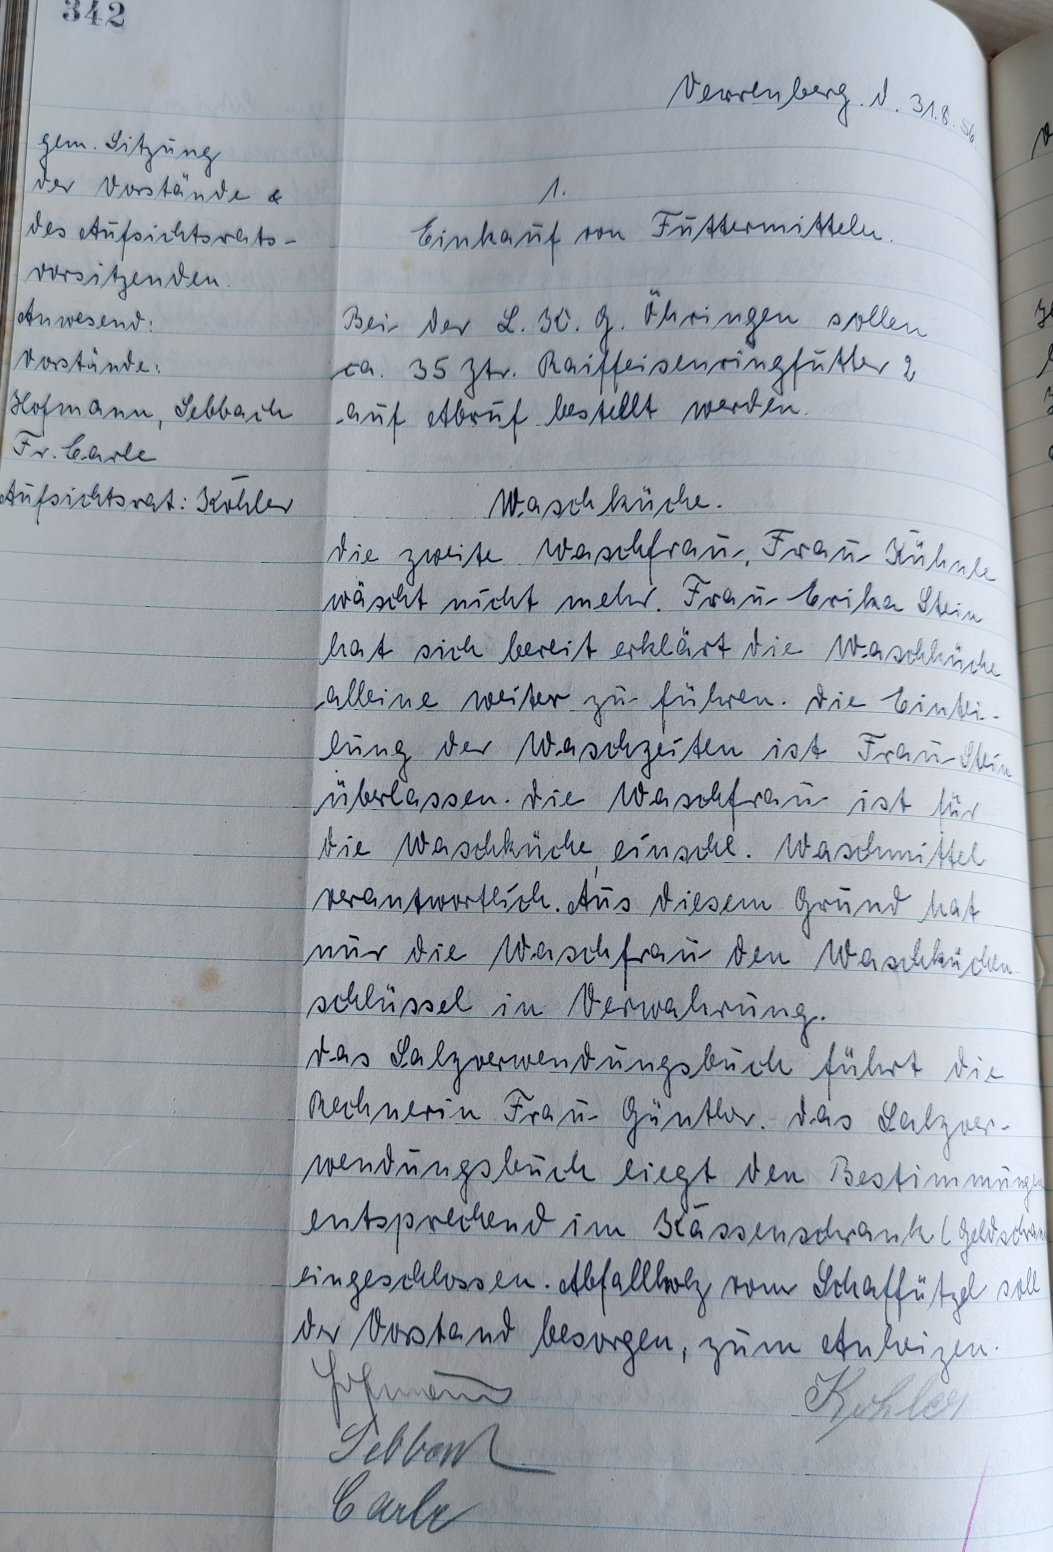 342
Verrenberg. d. 31.8.56.
gem. Sitzung
der Vorstände &
des Aufsichtsrats-
vorsitzenden.
Anwesend:
Vorstände:
Hofmann, Sebbach
Fr. Carle
Aufsichtsrat: Köhler
1.
Einkauf von Futtermitteln.
Bei der L. K. G. Öhringen sollen
ca. 35 Ztr. Raiffeisenringfutter 2
auf Abruf bestellt werden.
Waschküche.
Die zweite Waschfrau, Frau Kühnle
wäscht nicht mehr. Frau Erika Stein
hat sich bereit erklärt die Waschküche
alleine weiter zu führen. Die Eintei-
lung der Waschzeiten ist Frau Stein
überlassen. Die Waschfrau ist für
die Waschküche, einschl. Waschmittel
verantwortlich. Aus diesem Grund hat
nur die Waschfrau den Waschküchen
schlüssel in Verwahrung.
Das Salzverwendungsbuch führt die
Rechnerin Frau Günther. Das Salzver-
wendungsbuch liegt den Bestimmungen
entsprechend im Kassenschrank (Geldschrank
eingeschlossen. Abfallholz vom soll
der Vorstand besorgen, zum Anheizen.
Hofmann
Köhler
Sebbach
Carle